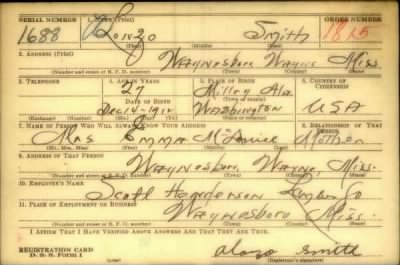 SERIAL NUMBER 1. NAME (Print) ORDER NUMBER
1688 Lonzo Smith 1815
(First) (Middle) (Last)
2. ADDRESS (Print)
Waynesboro Wayne Miss.
(Number and street or R. F. D. number) (Town) (County) (State)
3. TELEPHONE 4. AGE IN YEARS 5. PLACE OF BIRTH 6. COUNTRY OF CITIZENSHIP
27 Millry Ala.
DATE OF BIRTH (Town or county)
Dec 14-1912 Washington USA
(Exchange) (Number) (Mo.) (Day) (Yr.) (State or country)
7. NAME OF PERSON WHO WILL ALWAYS KNOW YOUR ADDRESS 8. RELATIONSHIP OF THAT PERSON
Mrs Emma Mother
(Mr., Mrs., Miss) (First) (Middle) (Last)
9. ADDRESS OF THAT PERSON
Waynesboro Wayne, Miss.
(Number and street or R. F. D. number) (Town) (County) (State)
10. EMPLOYER'S NAME
Scott Henderson
11. PLACE OF EMPLOYMENT OR BUSINESS
Waynesboro Miss.
(Number and street or R. F. D. number) (Town) (County) (State)
I AFFIRM THAT I HAVE VERIFIED ABOVE ANSWERS AND THAT THEY ARE TRUE.
REGISTRATION CARD
D. S. S. Form 1 Smith
(Registrant's signature)